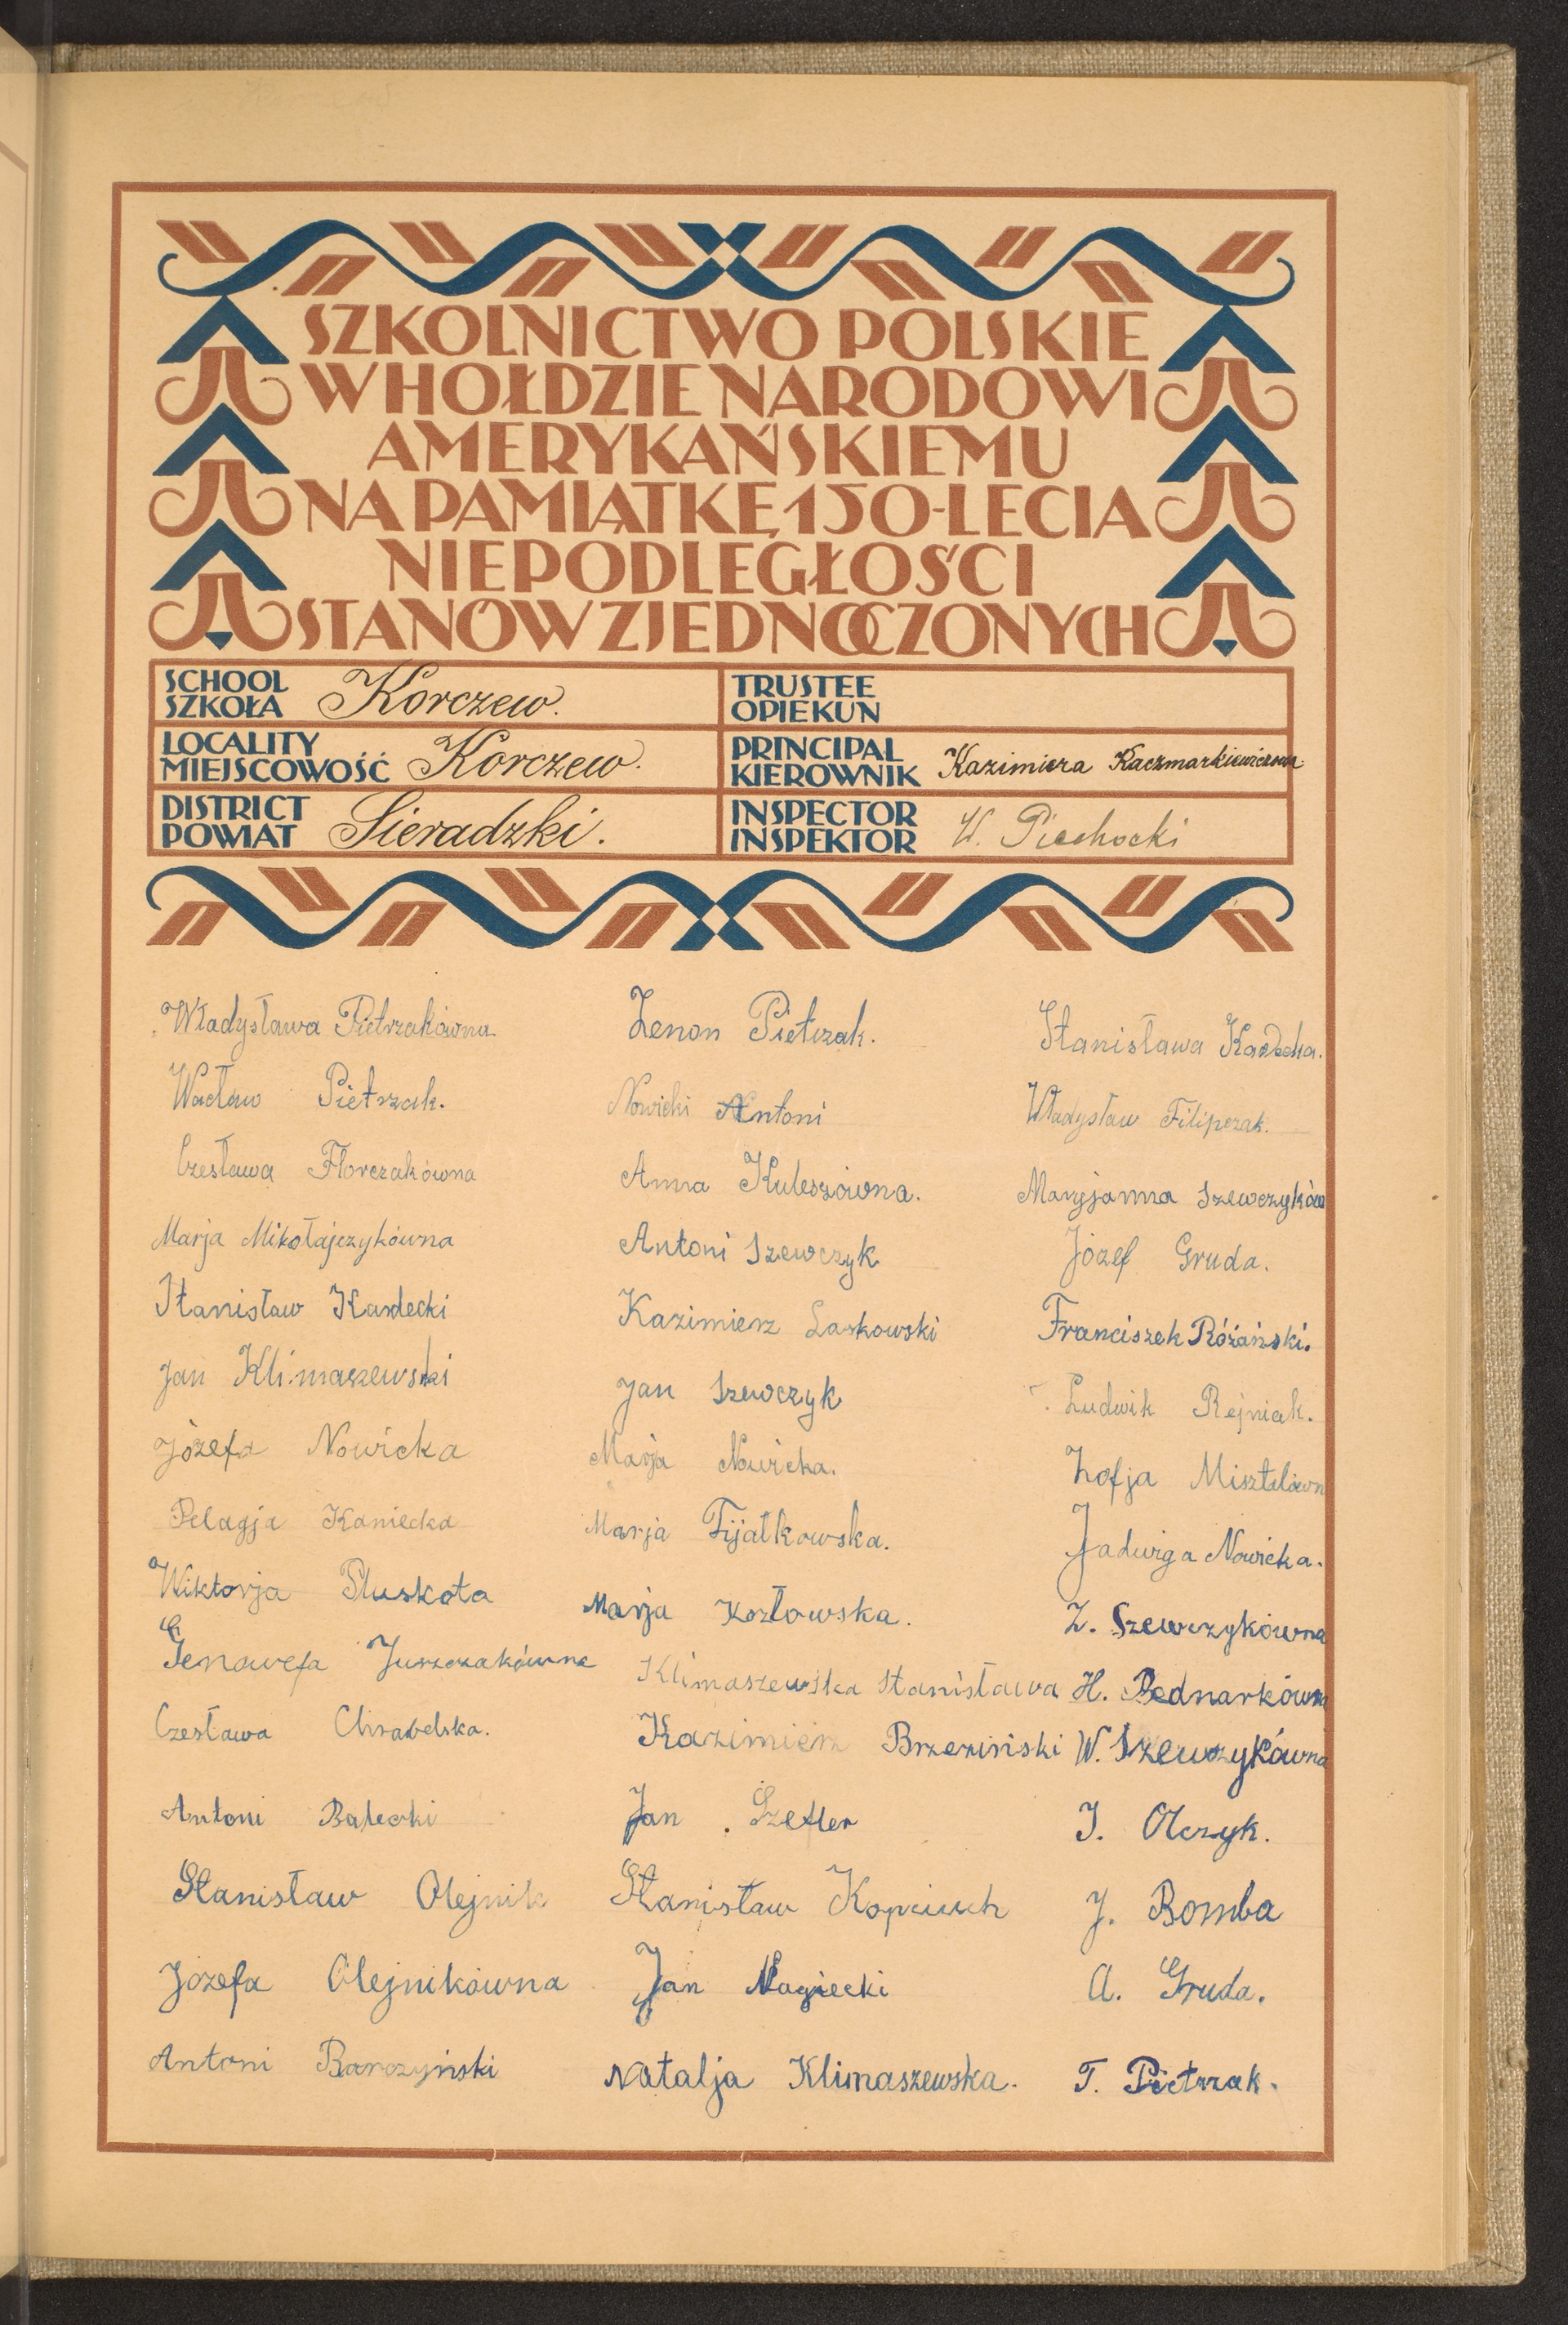 SZKOLNICTWO POLSKIE
W HOŁDZIE NARODOWI
AMERYKAŃSKIEMU
NA PAMIĄTKĘ 150-LECIA
NIEPODLEGŁOŚCI
STANÓW ZJEDNOCZONYCH
SCHOOL
SZKOŁA Korczew.
TRUSTEE
OPIEKUN
LOCALITY
MIEJSCOWOŚĆ Korczew.
PRINCIPAL
KIEROWNIK Kazimiera Kaczmarkiewiczowa
DISTRICT
POWIAT Sieradzki.
INSPECTOR
INSPEKTOR W. Piechocki
Władysława Pietrzakówna
Wacław Pietrzak.
Czesława Florczakówna
Marja Mikołajczykówna
Stanisław Kardecki
Jan Klimaszewski
Józefa Nowicka
Pelagja Kaniecka
Wiktorja Pluskota
Genowefa Juszczakówna
Czesława Chrabelska.
Antoni Balecki
Stanisław Olejnik
Józefa Olejnikówna
Antoni Barczyński
Zenon Pietrzak.
Nowicki Antoni
Anna Kuleszówna.
Antoni Szewczyk
Kazimierz Laskowski
Jan Szewczyk
Marja Nowicka.
Marja Fijałkowska.
Marja Kozłowska.
Klimaszewska Stanisława
Kazimierz Brzeziński
Jan Szetler
Stanisław Kopciuch
Jan Nagiecki
Natalja Klimaszewska.
Stanisława
Władysław Filipczak.
Maryjanna Szewczyków
Józef Gruda.
Franciszek Różański.
Ludwik Rejniak.
Zofja Misztalówn
Jadwiga Nowicka.
Z. Szewczykówna
H. Bednarkówna
W. Szewczykówna
J. Olczyk.
J. Bomba
A. Gruda.
T. Pietrzak.